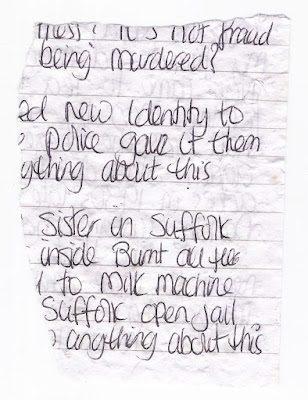 it's not fraud
being murdered?
ed new Identity to
police gave it them
ything about this
Sister in Suffolk
inside Burnt
to Milk machine
Suffolk open Jail
anything about this